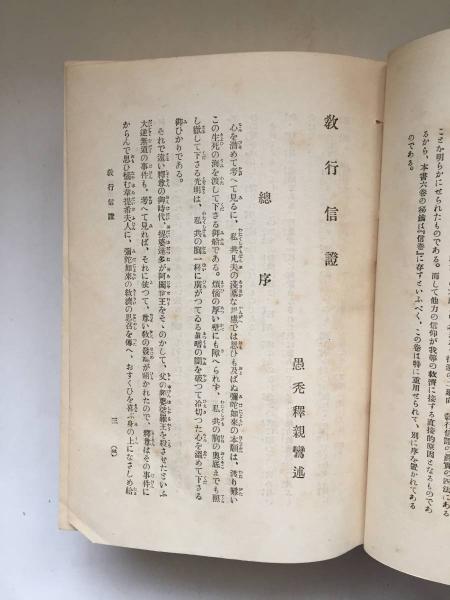 こゝか明らかにせられたものである。而して他力の信仰が我等の救濟に接する直接的原因となるものであ
るから、本書六卷の秘鑰は『信卷』に存すといふべく、この卷は特に重用せられて、別に序を置かれてある
のである。
敎行信證
愚禿釋親鸞述
總序
心を潜めて考へて見るに、私共凡夫の淺墓な思慮では思ひも及ばぬ彌陀如來の本願は、渡り難い
この生死の海を渡して下さる御船である。煩惱の厚い壁にも障へられず、私共の胸の奧底までも照
し徹して下さる光明は、私共の胸一杯に廣がつてゐる愚癡の闇を破つて冷切つた心を溫めて下さる
御ひかりである。
それで遠い釋尊の御時代、提婆達多が阿闍世王をそゝのかして、父の頻婆娑羅王を殺させたといふ
大逆無道の事件も、考へて見れば、それに依つて、尊い敎の發端が開かれたので、釋尊はその事件に
からんで思ひ惱む韋提希夫人に、彌陀如來の救濟の思召を傳へ、おすくひを喜ぶ身の上になさしめ給
敎行信證
三